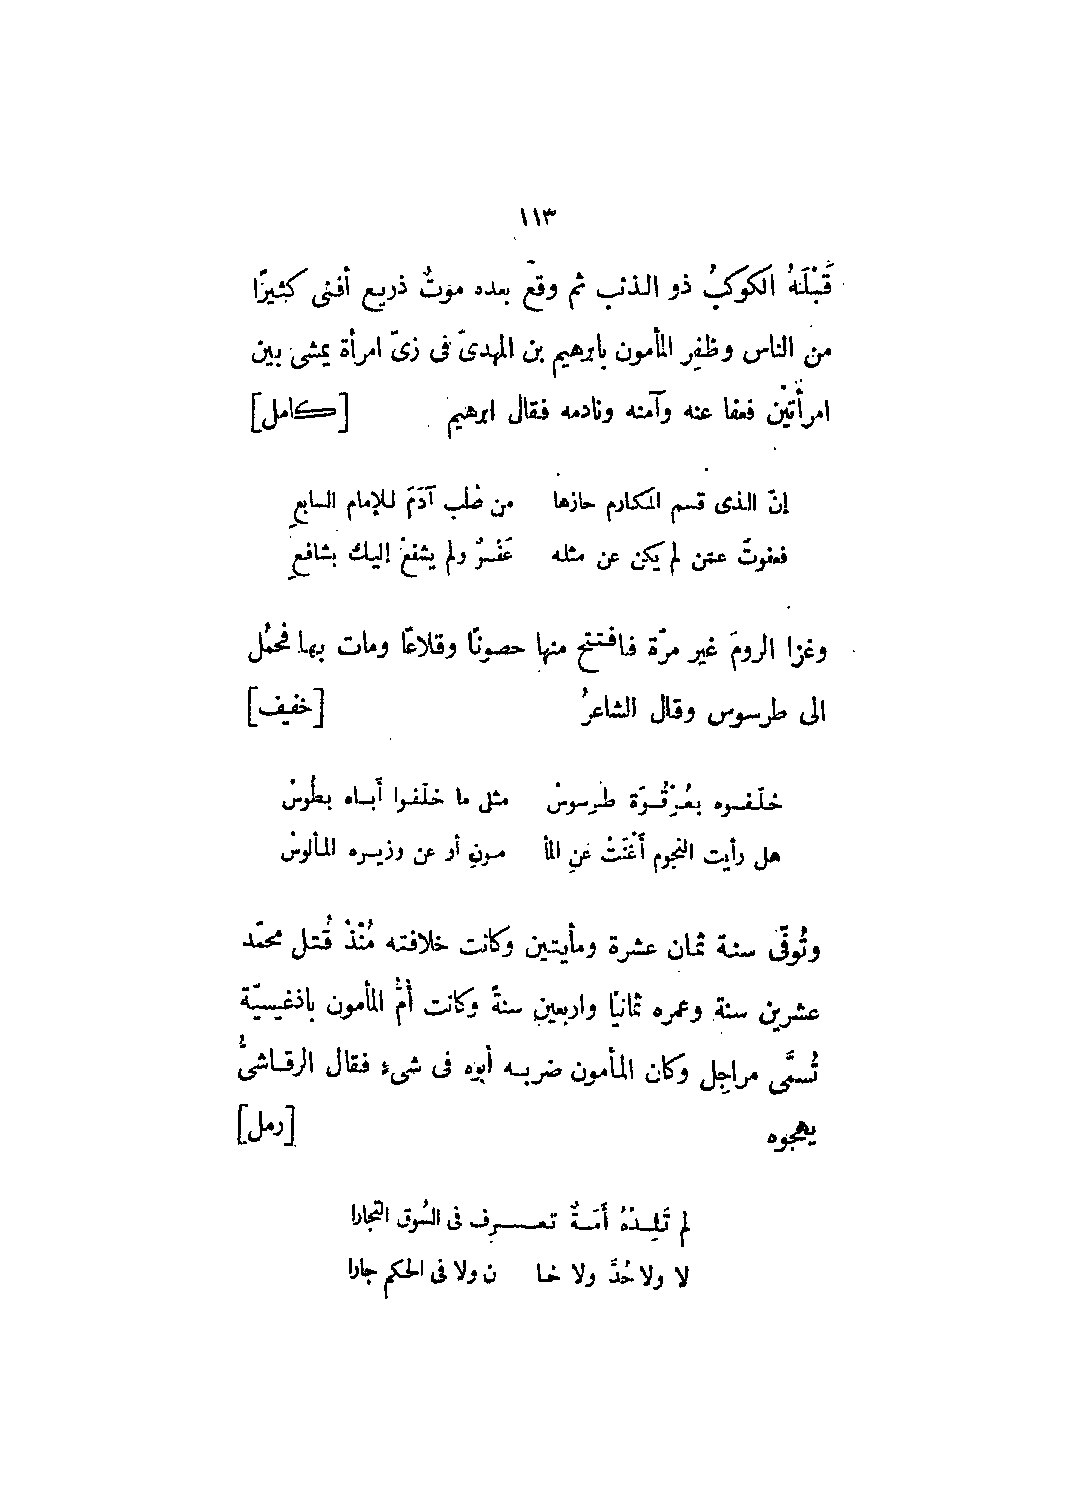 ١١٣
قَبْلَهُ الكوكبُ ذو الذنب ثم وقع بعده موتٌ ذريع أفنى كثيرًا
من الناس وظفِر المأمون بابرهيم بن المهدىّ فى زىّ امرأة يمشى بين
امرأتيْن فعفا عنه وآمنه ونادمه فقال ابرهيم [كامل]
إنّ الذى قسم المكارم حازها من صُلب آدَمَ للإمام السابعِ
فعفوتَّ عمّن لم يكن عن مثله عَفْوٌ ولم يشفعْ إليك بشافعِ
وغزا الرومَ غير مرّة فافتتح منها حصونًا وقلاعًا ومات بها فحُمل
الى طرسوس وقال الشاعرُ [خفيف]
خلّفوه بعُرْقُوَة طرِسوسْ مثل ما خلّفوا أَباه بطُوسْ
هل رأيت النجوم أَغْنَتْ عَنِ المأ مونِ أو عن وزيره المألوسْ
وتُوفّى سنة ثمان عشرة ومأيتين وكانت خلافته مُنْذُ قُتل محمّد
عشرين سنة وعمره ثمانيًا واربعين سنةً وكانت أُمُّ المأمون باذغيسيّة
تُسمَّى مراجِل وكان المأمون ضربه أبوه فى شىءٍ فقال الرقاشىُّ
يهجوه [رمل]
لم تَلِدْهُ أَمَةٌ تعرف فى السُوق التجارا
لا ولا حُدَّ ولا خا ن ولا فى الحكم جارا